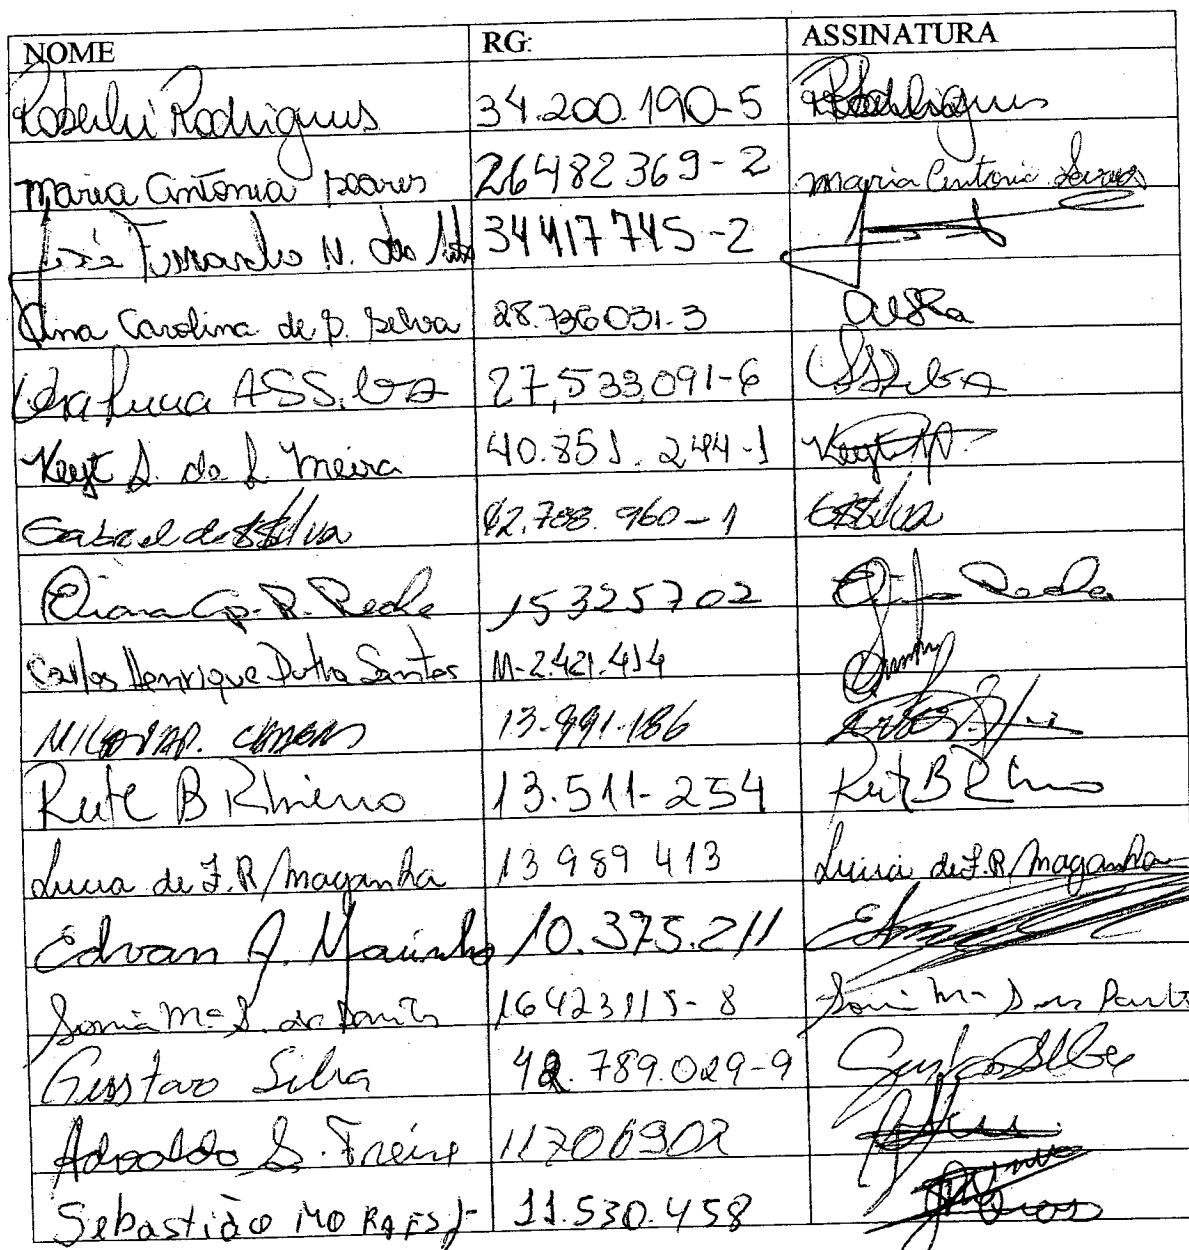 NOME RG: ASSINATURA
Roseli Rodrigues 34.200.190-5 Rodrigues
Maria Antonia Soares 26482369-2 Maria Antonia Soares
José Fernando N. dos 34417745-2
Ana Carolina de P. Selva 28.736031-3
Vera Lucia ASSilva 27,533,091-6
Keyt S. de L. Meira 40.851.244-1 Keyt
Gabriel da Silva 42.788.960-1
Eliana Ap. R. Reche 15325702
Carlos Henrique Dutra Santos M-2.421.414
13.991.186
Rute B Ribeiro 13.511-254 Rute B
Lucia de F.R Maganha 13 989 413 Lucia de F.R Maganha
Edvan A. Marinho 10.375.211
Sonia Mª S. dos Santos 16423115-8 Sonia Mª
Gusstavo Silva 42.789.029-9
Advaldo S. Freire 11706902
Sebastião MORAES Jr 11.530.458